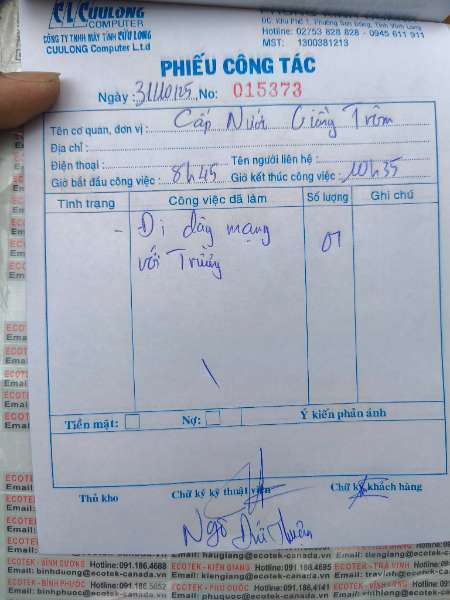 CUULONG
COMPUTER
CÔNG TY TNHH MÁY TÍNH CỬU LONG
CUULONG Computer L.t.d
ĐC: Khu Phố 1, Phường Sơn Đông, Tỉnh Vĩnh Long
Hotline: 02753 828 828 - 0945 611 911
MST: 1300381213
PHIẾU CÔNG TÁC
Ngày: 31/10/25 No: 015373
Tên cơ quan, đơn vị: Cấp Nước Giồng Trôm
Địa chỉ:
Điện thoại: Tên người liên hệ:
Giờ bắt đầu công việc: 8h45 Giờ kết thúc công việc: 10h35
Tình trạng Công việc đã làm Số lượng Ghi chú
- Đi dây mạng 01
với Trường
Tiền mặt: Nợ: Ý kiến phản ánh
Thủ kho Chữ ký kỹ thuật viên Chữ ký khách hàng
Ngô
ECOTEK - BÌNH DƯƠNG Hotline: 091.186.4688
Email: binhduong@ecotek-canada.vn
ECOTEK - BÌNH PHƯỚC Hotline: 091.186.5052
Email: binhphuoc@ecotek-canada.vn
Email: haugiang@ecotek-canada.vn
ECOTEK - KIÊN GIANG Hotline: 091.186.4695
Email: kiengiang@ecotek-canada.vn
ECOTEK - PHÚ QUỐC Hotline: 091.186.4141
Email: phuquoc@ecotek-canada.vn
Email: tiengiang@ecotek-canada.vn
ECOTEK - TRÀ VINH Hotline:
Email: travinh@ecotek-canada
Email: vinhlong@ecotek-canada.vn